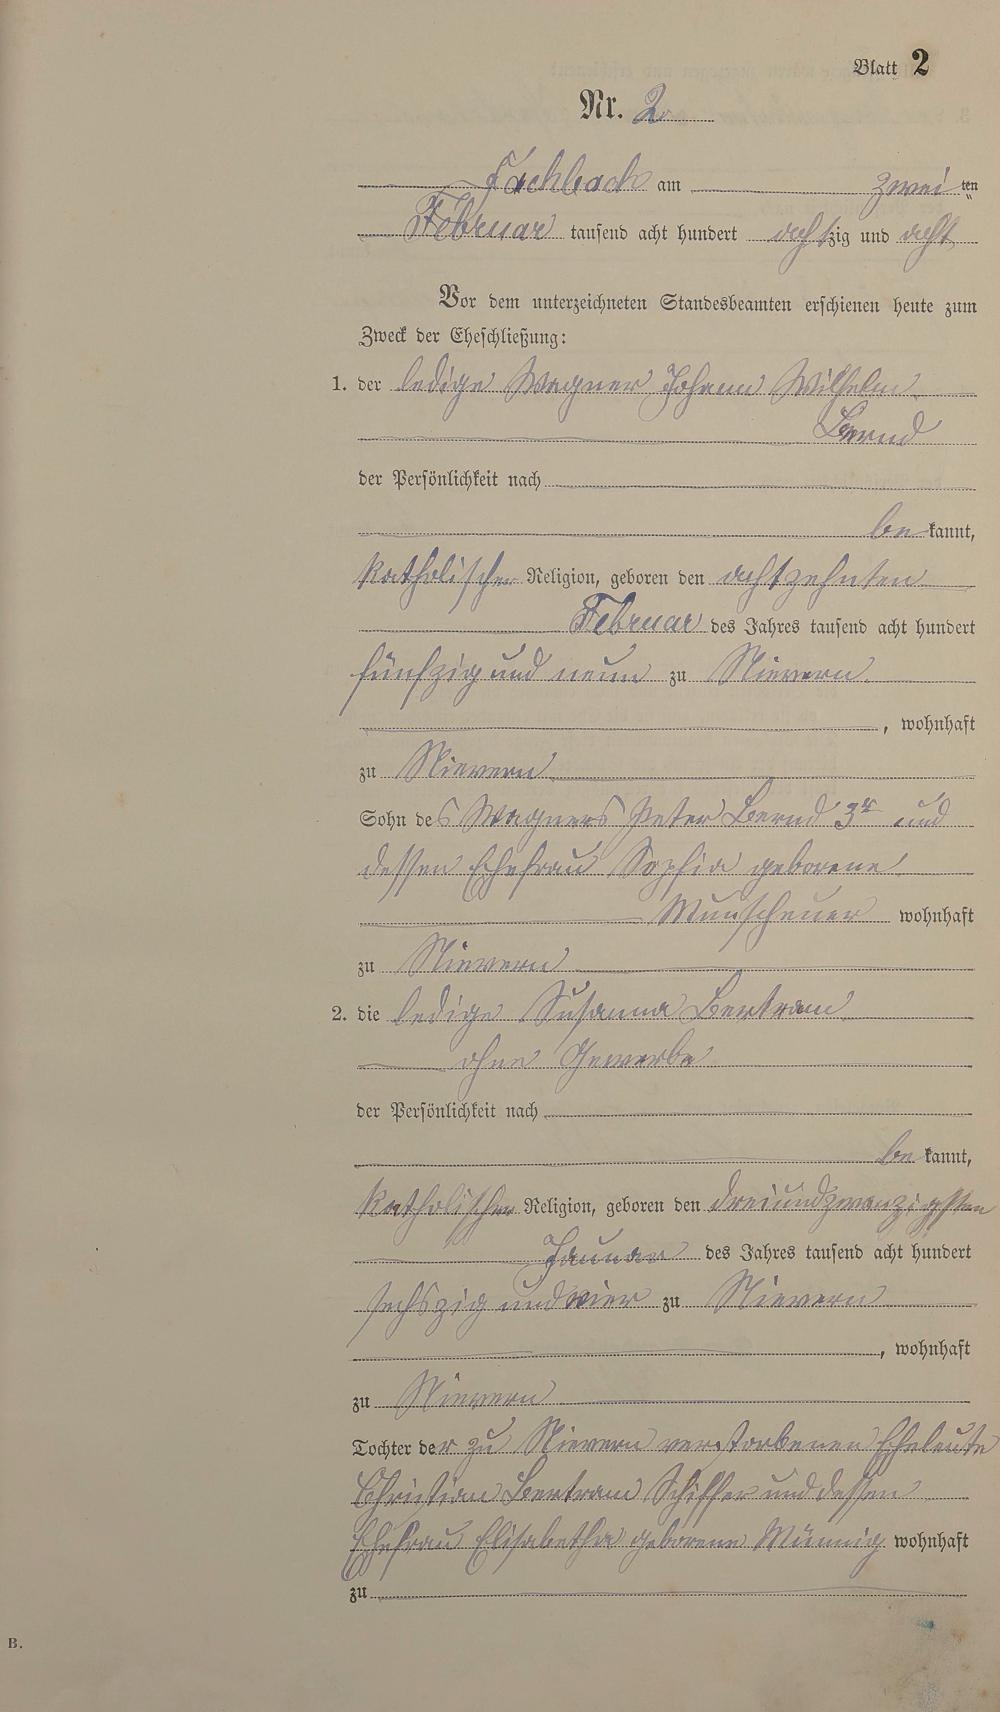 Blatt 2
Nr. 2
Fachbach am zwei ten
Februar tausend acht hundert achtzig und acht
Vor dem unterzeichneten Standesbeamten erschienen heute zum
Zweck der Eheschließung:
1. der ledige Wagner Johann Wilhelm
Bernd
der Persönlichkeit nach
be kannt,
katholischer Religion, geboren den achtzehnten
Februar des Jahres tausend acht hundert
fünfzig und neun zu Nievern
, wohnhaft
zu Nievern
Sohn des Wagners Peter Bernd 3ter und
dessen Ehefrau Sophia geborene
Wunscheuer wohnhaft
zu Nievern
2. die ledige Susanna Bertram
ohne Gewerbe
der Persönlichkeit nach
be kannt,
katholischer Religion, geboren den dreiundzwanzigsten
Januar des Jahres tausend acht hundert
sechszig und vier zu Nievern
, wohnhaft
zu Nievern
Tochter der zu Nievern verstorbenen Eheleute
Christian Bertram Schiffer und dessen
Ehefrau Elisabetha geborene wohnhaft
zu
B.